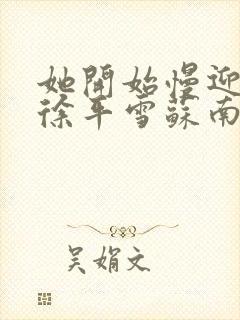 她開始慢迎
徐平雪蘇南
吴娟文